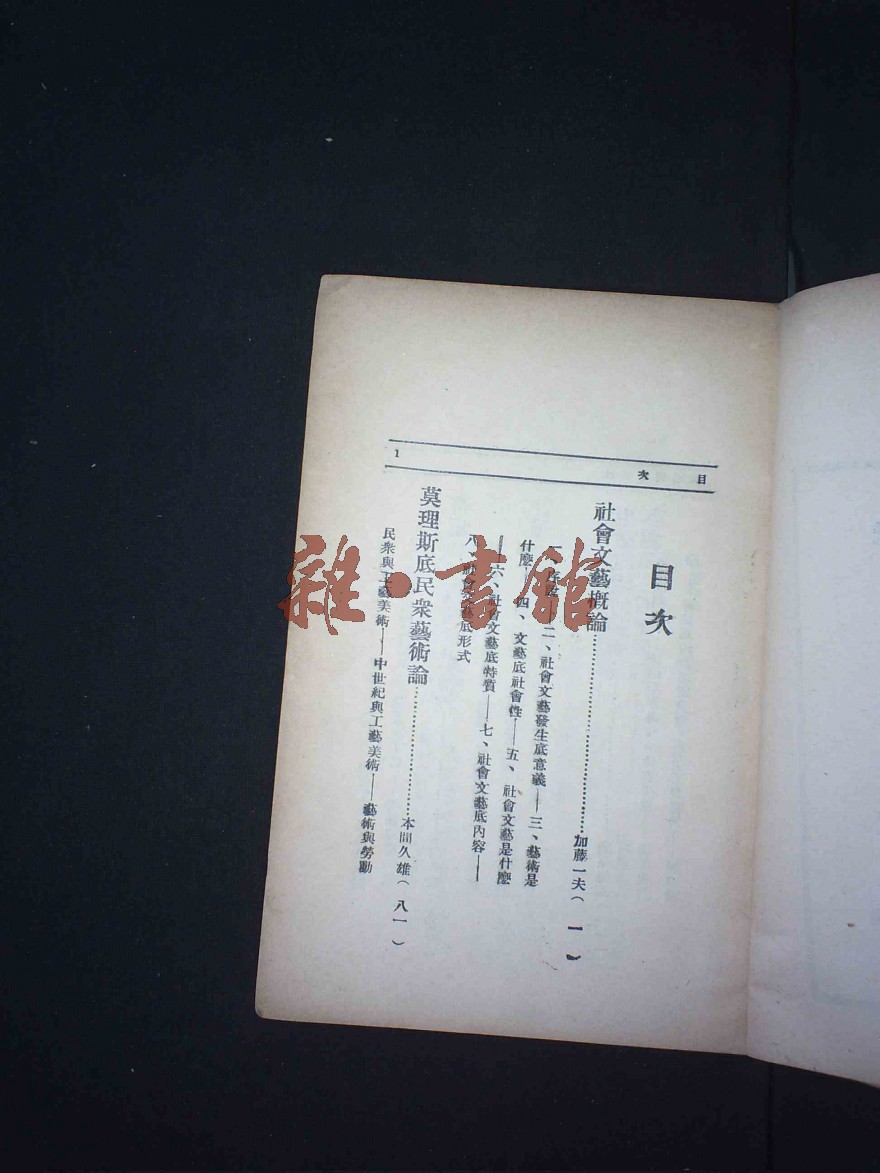 目次
1
目次
社會文藝概論……加藤一夫（一）
二、社會文藝發生底意義——三、藝術是
什麼 四、文藝底社會性——五、社會文藝是什麼
——六、社會文藝底特質——七、社會文藝底內容——
八、底形式
莫理斯底民衆藝術論……本間久雄（八一）
民衆與工藝美術——中世紀與工藝美術——藝術與勞動
雜·書館